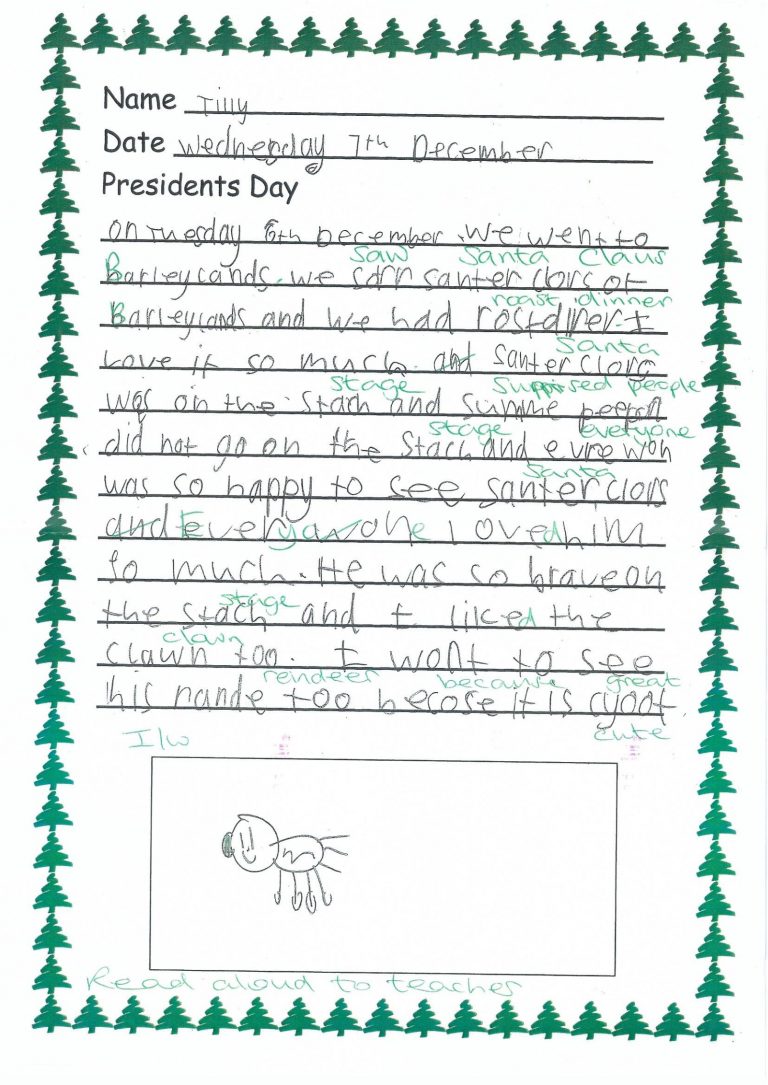 Name Tilly
Date Wednesday 7th December
Presidents Day
on Tuesday 6th December we went to
saw Santa Claus
Barleylands. we sarr santer clors of
roast dinner
Barleylands and we had rostdirer. I
Santa
Love it so much. and santer clors
stage Surprised people
was on the stach and
stage everyone
did not go on the stach and evrewon
Santa
was so happy to see santer clors
and Everyone loved him
so much. He was so brave on
stage
the stach and I liked the
clawn
clawn too. I wont to see
reindeer because great
his rande too becose it is cyoot
I/w cute
Read aloud to teacher